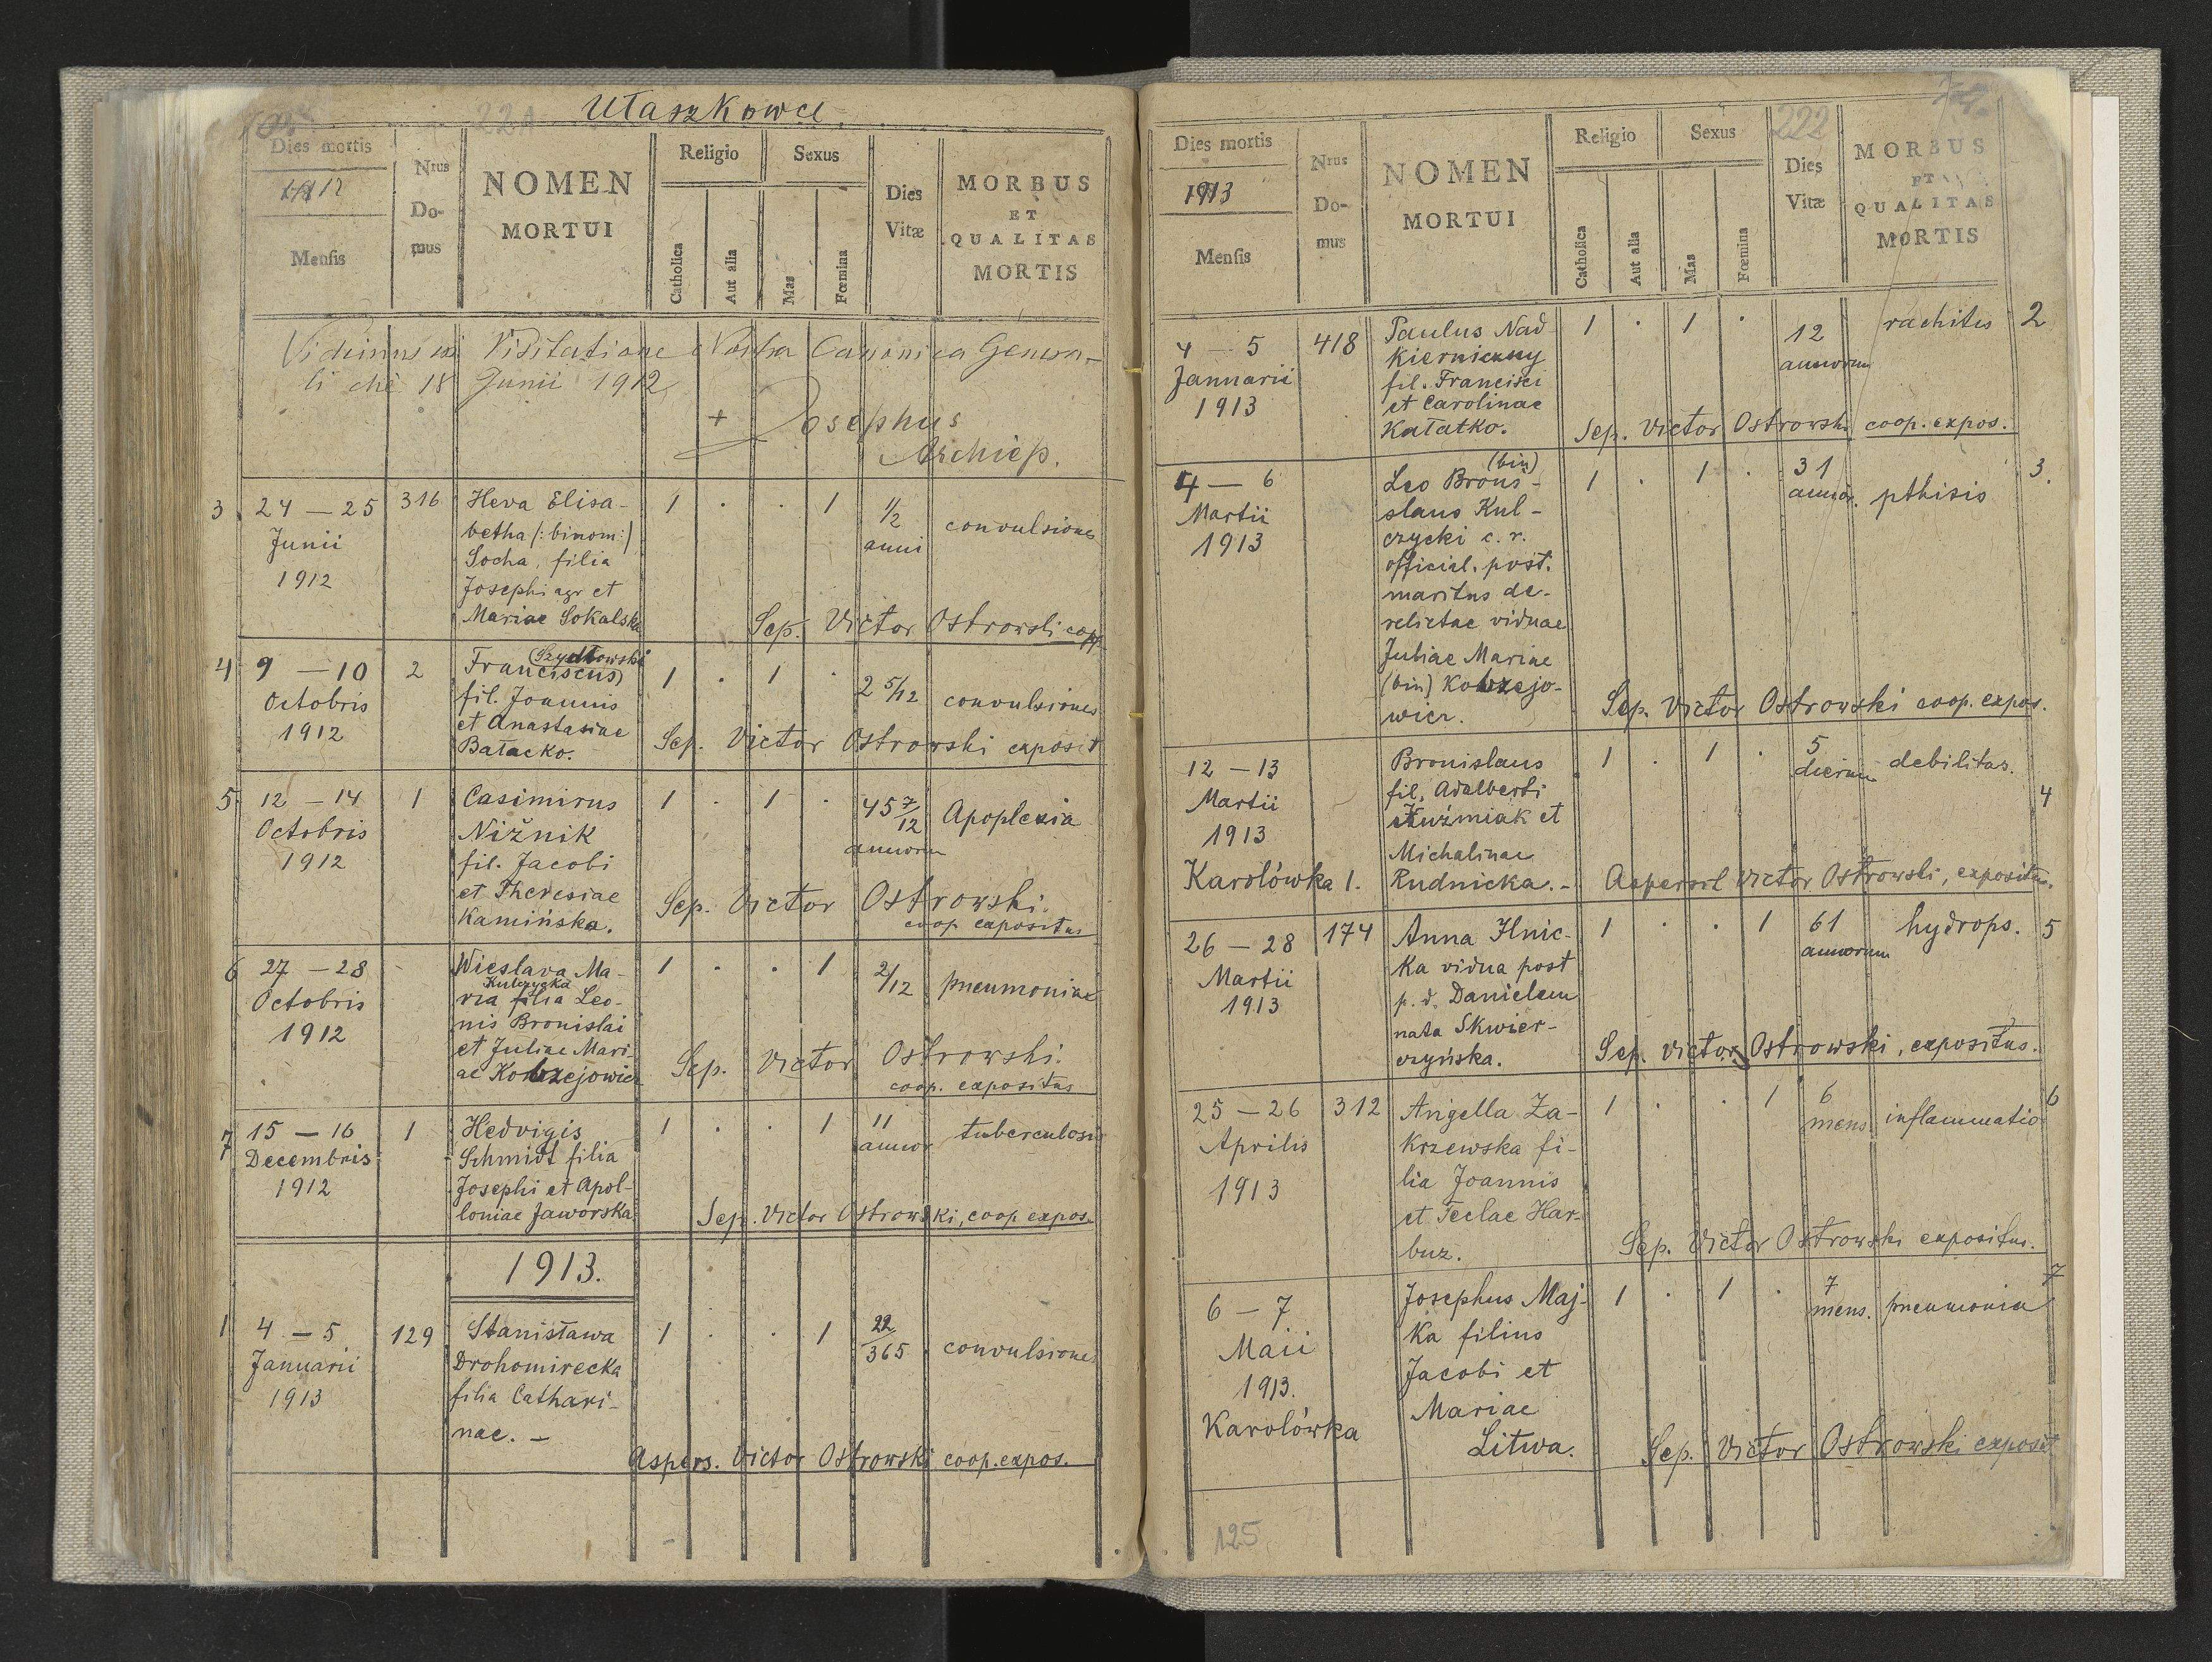 Ułaszkowce.
221
Dies mortis
1912
Mensis
Nrus
Do-
mus
NOMEN
MORTUI
Religio
Catholica
Aut alia
Sexus
Mas
Fœmina
Dies
Vitæ
MORBUS
ET
QUALITAS
MORTIS
Vidimus in Visitatione Nostra Canonica Genera-
li die 18 Junii 1912
+ Josephus
Archiep.
3 24 — 25 316 Heva Elisa- 1 . . 1 1/2 convulsiones
Junii betha (: binom :) anni
1912 Socha, filia
Josephi agr et
Mariae Sokalska
Sep. Victor Ostrowski coop.
4 9 — 10 2 Franciscus (Szydłowski) 1 . 1 . 2 5/12 convulsiones
Octobris fil. Joannis
1912 et Anastasiae
Bałacko.
Sep. Victor Ostrowski exposit
5 12 — 14 1 Casimirus 1 . 1 . 45 7/12 Apoplexia
Octobris Nižnik annorum
1912 fil. Jacobi
et Theresiae
Kamińska.
Sep. Victor Ostrowski.
coop expositus
6 27 — 28 - Wieslava Ma- 1 . . 1 2/12 pneumoniae
Octobris Kulczycka
ria filia Leo-
1912 nis Bronislai
et Juliae Mari-
ae
Sep. Victor Ostrowski.
coop. expositus
7 15 — 16 1 Hedvigis 1 . . 1 11 tuberculosis
Decembris Schmidt filia annor
1912 Josephi et Apol-
loniae Jaworska.
Sep. Victor Ostrowski, coop expos.
1913.
1 4 — 5 129 Stanisława 1 . . 1 22/365 convulsiones
Januarii Drohomirecka
1913 filia Cathari-
nae. —
Aspers. Victor Ostrowski coop. expos.
222
Dies mortis
1913
Mensis
Nrus
Do-
mus
NOMEN
MORTUI
Religio
Catholica
Aut alia
Sexus
Mas
Fœmina
Dies
Vitæ
MORBUS
ET
QUALITAS
MORTIS
4 — 5 418 Paulus Nad 1 . 1 . 12 rachites 2
Januarii kierniczny annorum
1913 fil. Francisci
et Carolinae
Kałatko.
Sep. Victor Ostrowski coop. expos.
4 — 6 Leo Broni- (bin) 1 . 1 . 31 pthisis 3.
Martii slaus Kul- annor.
1913 czycki c. r.
official. post.
maritus de-
relictae viduae
Juliae Mariae
(bin)
wicz.
Sep. Victor Ostrowski coop. expos.
12 — 13 Bronislaus 1 . 1 . 5 debilitas.
Martii fil. Adalberti dierum 4
1913 Kuźmiak et
Michalinae
Karolówka 1. Rudnicka. —
Aspersit Victor Ostrowski, expositus.
26 — 28 174 Anna Hnic- 1 . . 1 61 hydrops. 5
Martii ka vidua post annorum
1913 p. d. Danielem
nata Skwier-
czyńska.
Sep. Victor Ostrowski, expositus.
25 — 26 312 Angella Za- 1 . . 1 6 inflammatio 6
Aprilis krzewska fi- mens.
1913 lia Joannis
et Teclae Har-
buz.
Sep. Victor Ostrowski expositus.
6 — 7 Josephus Maj- 1 . 1 . 7 pneumonia 7
Maii ka filius mens.
1913. Jacobi et
Karolówka Mariae
Litwa.
Sep. Victor Ostrowski exposit
125